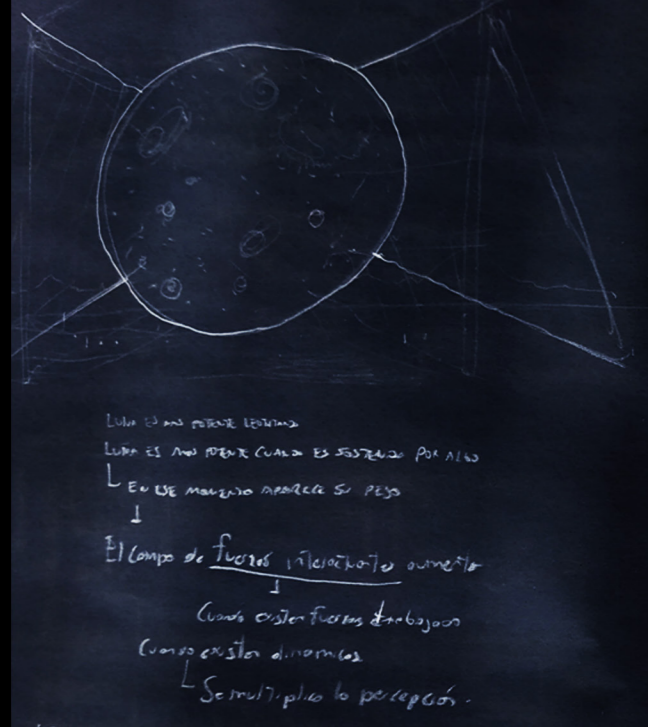 LUNA ES MAS POTENTE LEVITANDO
LUNA ES MAS POTENTE CUANDO ES SOSTENIDO POR ALGO
EN ESE MOMENTO APARECE SU PESO
El campo de fuerzas interactantes aumenta
Cuando existen fuerzas trabajando
Cuando existen dinamicas
Se multiplica la percepción.